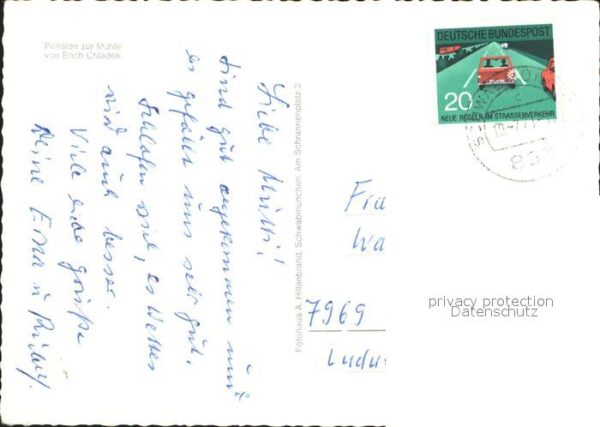 Pension zur Mühle
von Erich Uhladek
Liebe Mutti!
Sind gut angekommen und
es gefällt uns sehr gut.
Schlafen viel, es Wetter
wird auch besser.
Viele liebe Grüße
Deine Erna u
Fotohaus A. Hillenbrand, Schwabmünchen, Am Schrannenplatz 2
DEUTSCHE BUNDESPOST
20
NEUE REGELN IM STRASSENVERKEHR
Fra
Wa
7969
Ludw
privacy protection
Datenschutz